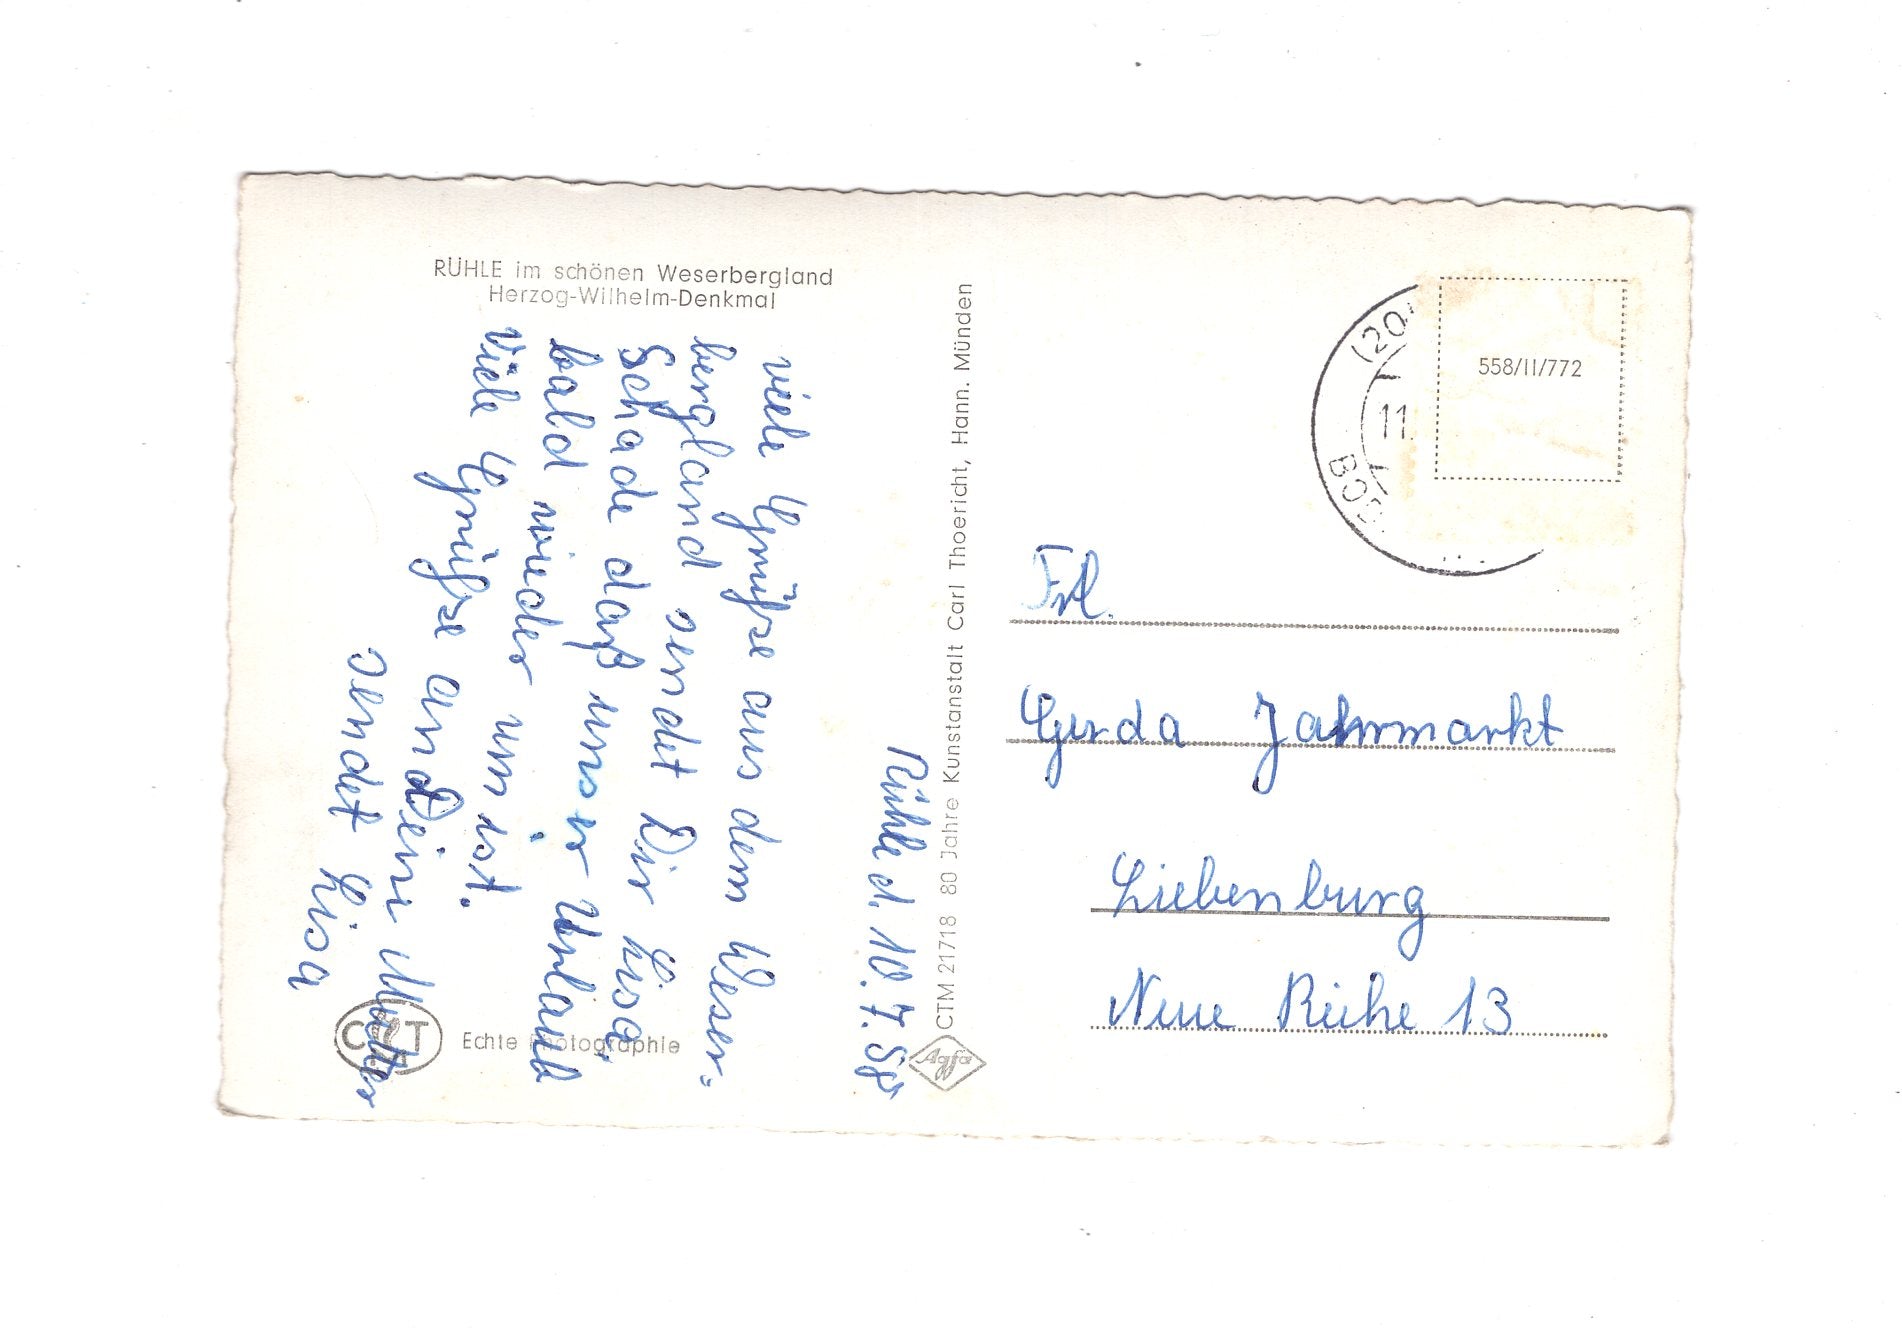 RÜHLE im schönen Weserbergland
Herzog-Wilhelm-Denkmal
Rühle d. 10. 7. 58
viele Grüße aus dem Weser-
bergland sendet Dir Lisa,
Schade daß unser Urlaub
bald wieder um ist.
Viele Grüße an Deine Mutter
sendet Lisa
CTM 21718 80 Jahre Kunstanstalt Carl Thoericht, Hann. Münden
Echte Photographie
Agfa
558/II/772
(20
11.
BOD
Frl.
Gerda Jahrmarkt
Liebenburg
Neue Reihe 13